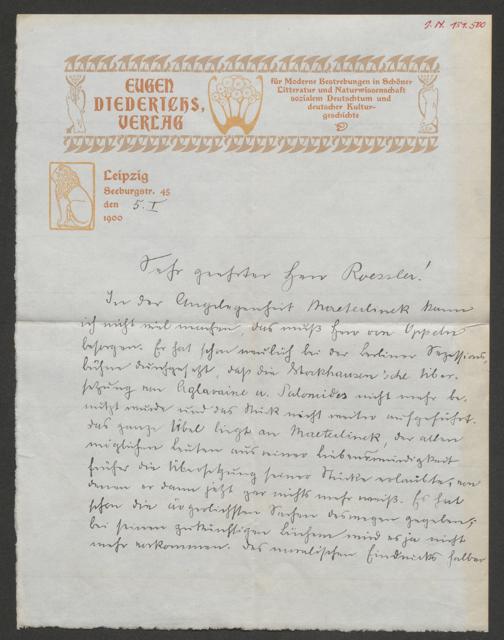 J. N. 151.500
EUGEN
DIEDERICHS,
VERLAG
für Moderne Bestrebungen in Schöner
Litteratur und Naturwissenschaft
sozialem Deutschtum und
deutscher Kultur-
geschichte
Leipzig
Seeburgstr. 45
den 5. I
1900
Sehr geehrter Herr Roessler!
In der Angelegenheit Maeterlinck kann
ich nicht viel machen, das muß Herr von Oppeln
besorgen. Er hat schon neulich bei der Berliner Sezessions-
bühne durchgesetzt, daß die Stockhausen'sche Über-
setzung von Aglavaine u. Palomides nicht mehr be-
nutzt wurde und das Stück nicht weiter aufgeführt.
Das ganze Übel liegt an Maeterlinck, der allen
möglichen Leuten aus reiner Liebenswürdigkeit
früher die Übersetzung seiner Stücke erlaubte, von
denen er dann jetzt gar nichts mehr weiß. Es hat
schon die ärgerlichsten Sachen deswegen gegeben,
bei seinen zukünftigen Büchern wird es ja nicht
mehr vorkommen. Des moralischen Eindrucks halber